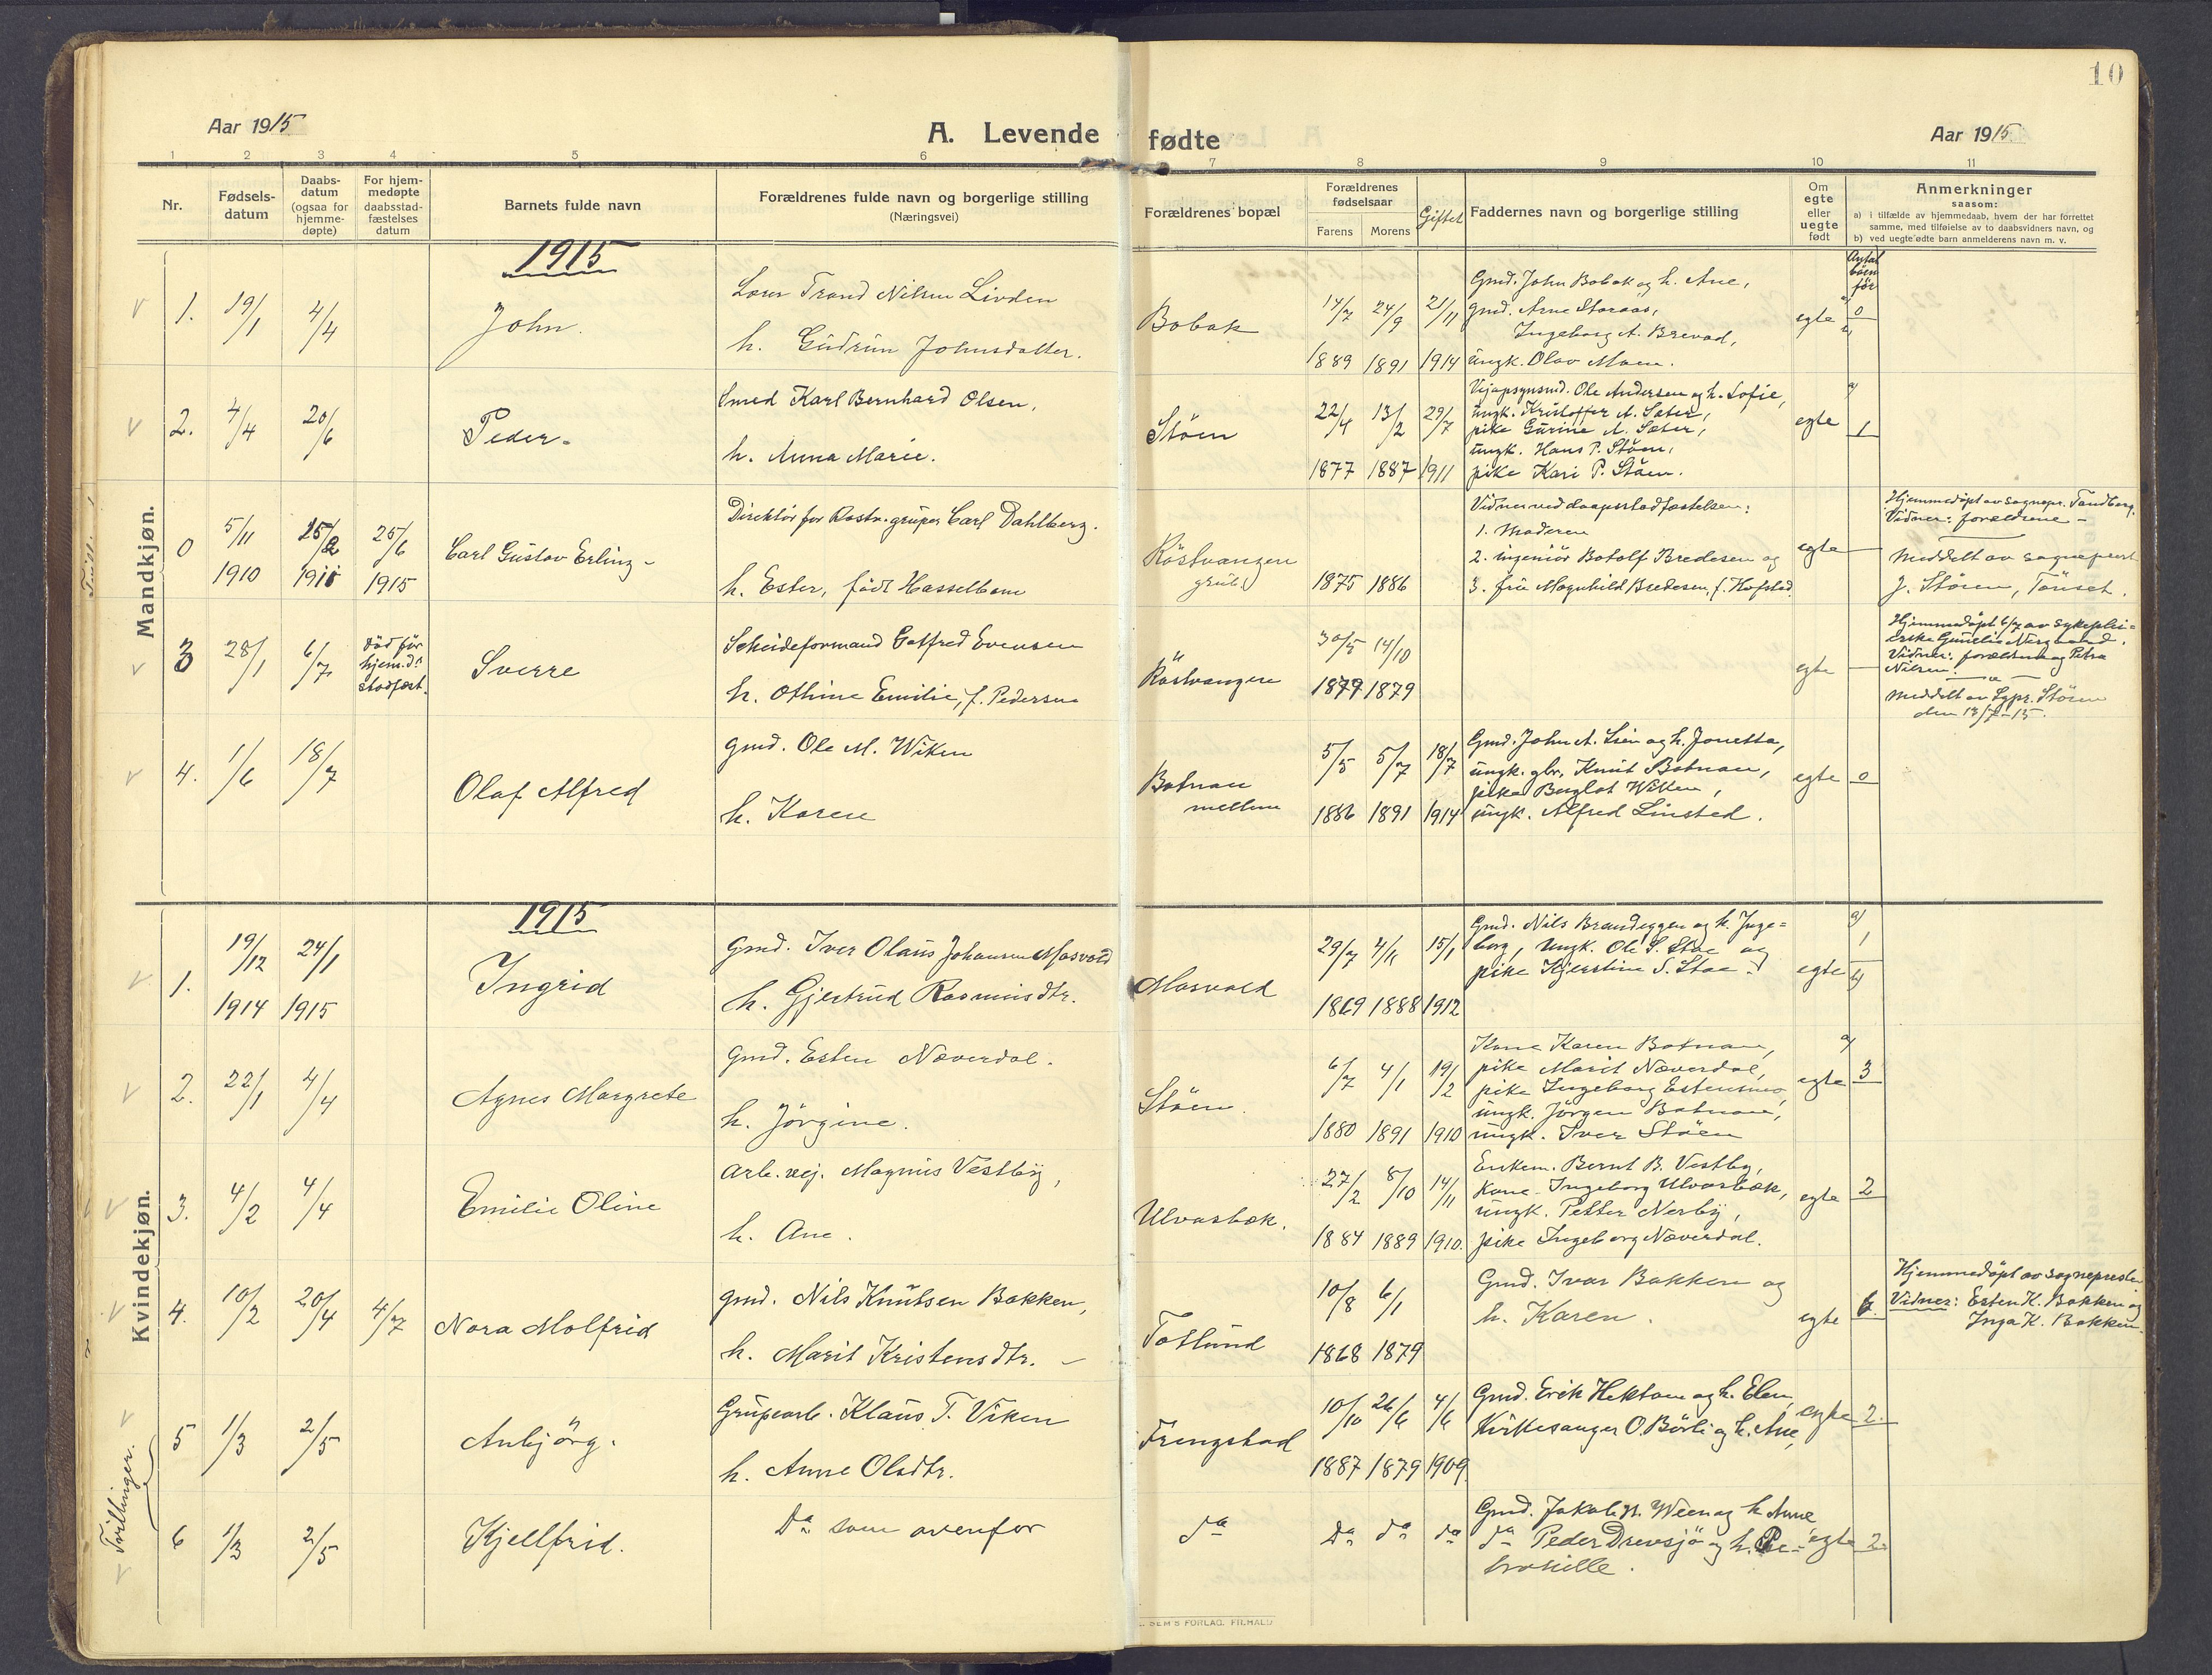 10
Aar 1915
A. Levende fødte
Aar 1915.
1 2 3 4 5 6 7 8 9 10 11
Nr.
Fødsels-
datum
Daabs-
datum
(ogsaa for
hjemme-
døpte)
For hjem-
medøpte
daabsstad-
fæstelses
datum
Barnets fulde navn
Forældrenes fulde navn og borgerlige stilling
(Næringsvei)
Forældrenes bopæl
Forældrenes
fødselsaar
Farens Morens
Giftet
Faddernes navn og borgerlige stilling
Om
egte
eller
uegte
født
Anmerkninger
saasom:
a) i tilfælde av hjemmedaab, hvem der har forrettet
samme, med tilføielse av to daabsvidners navn, og
b) ved uegte fødte barn anmelderens navn m. v.
Antal
børn
før
Mandkjøn.
1915
1. 19/1 4/4 John.
Trond Nilsen Livden
h. Gudrun Johnsdatter.
Bobak
14/7 24/9 21/11
1889 1891 1914
Gmd. John Bobak og h. Ane,
gmd. Arne Storaas,
Ingeborg A. Brevad,
ungk. Olav Moen.
egte 0
2. 4/4 20/6 Peder.
Smed Karl Bernhard Olsen,
h. Anna Marie.
Støen
22/4 13/2 29/7
1877 1887 1911
Ole Andersen og h. Sofie,
ungk. Kristoffer A. Sæter,
pike Gurine A. Sæter,
ungk. Hans P. Støen,
pike Kari P. Støen.
egte 1
0 5/11 1910 25/2 1911 25/6 1915
Carl Gustav Erling
Direktør for Røstv. gruper Carl Dahlberg.
h. Ester, født Hasselbom
Röstvangen
grube
1875 1886
Vidner ved daapsstadfæstelsen:
1. Moderen
2. ingeniör Botolf Bredesen og
3. frue Magnhild Bredesen, f. Hofstad.
egte
Hjemmedøpt av sognepr. Tandberg.
Vidner: forældrene
Meddelt av sogneprest
J. Støren, Tönset.
3 28/1 6/7
død før
hjem.d:
stadfæst.
Sverre
Scheideformand Gotfred Evensen
h. Othine Emilie, f. Pedersen
Röstvangen
30/5 14/10
1879 1879
egte
Hjemmedøpt 6/7 av sykeplei-
erske Gunelie Nergaard.
Vidner: forældrene og Petra
Nilsen.
Meddelt av Sgpr. Støren
den 13/7-15.
4. 1/6 18/7 Olaf Alfred
gmd. Ole M. Wiken
h. Karen
Botnan
mellem
5/5 5/7 18/7
1886 1891 1914
Gmd. John A. Lien og h. Jonetta,
ungk. gbr. Knut Botnan,
pike Buglat Wiken,
ungk. Alfred Linsted.
egte 0
Kvindekjøn.
1915
1. 19/12 1914 24/1 1915 Ingrid
Gmd. Iver Olaus Johansen Mosvold
h. Gjertrud Rasmusdtr.
Mosvold
29/7 15/1
1869 1888 1912
Gmd. Nils Brandeggen og h. Inge-
borg, Ungk. Ole S. Stoe og
pike Kjerstine S. Stoe.
egte 1
2. 22/1 4/4 Agnes Margrete
Gmd. Esten Næverdal.
h. Jörgine.
Støen.
6/7 4/1 19/2
1880 1891 1910
Kone Karen Botnan,
pike Marit Næverdal,
pike Ingeborg Estensmo,
ungk. Jörgen Botnan,
ungk. Iver Støen
egte 3
3. 4/2 4/4 Emilie Oline
Arb. vej. Magnus Vestby,
h. Ane.
Ulvasbæk.
27/2 8/10 14/11
1884 1889 1910.
Enkem. Bernt B. Vestby,
Kone Ingeborg Ulvasbæk,
ungk. Petter Nerby,
pike Ingeborg Næverdal.
egte 2
4. 10/2 20/4 4/7 Nora Molfrid
gmd. Nils Knutsen Bakken,
h. Marit Kristensdtr.
Totlund
10/8 6/1
1868 1879
Gmd. Ivar Bakken og
h. Karen.
egte 6.
Hjemmedøpt av sognepresten
Vidner: Esten K. Bakken og
Inga K. Bakken.
Tvillinger.
5 1/3 2/5 Anbjörg.
Grupearb. Klaus T. Viken
h. Anne Olsdtr.
Frengstad
10/10 26/6 4/6
1887 1879 1909
Gmd. Erik Hektoen og h. Elen,
Kirkesanger O. Börli og h. Ane,
egte 2.
6 1/3 2/5 Kjellfrid.
Da som ovenfor
da
Da da da
Gmd. Jakob N.Ween og h. Anne
da Peder Drevsjø og h. Pe-
tronille.
egte 2.